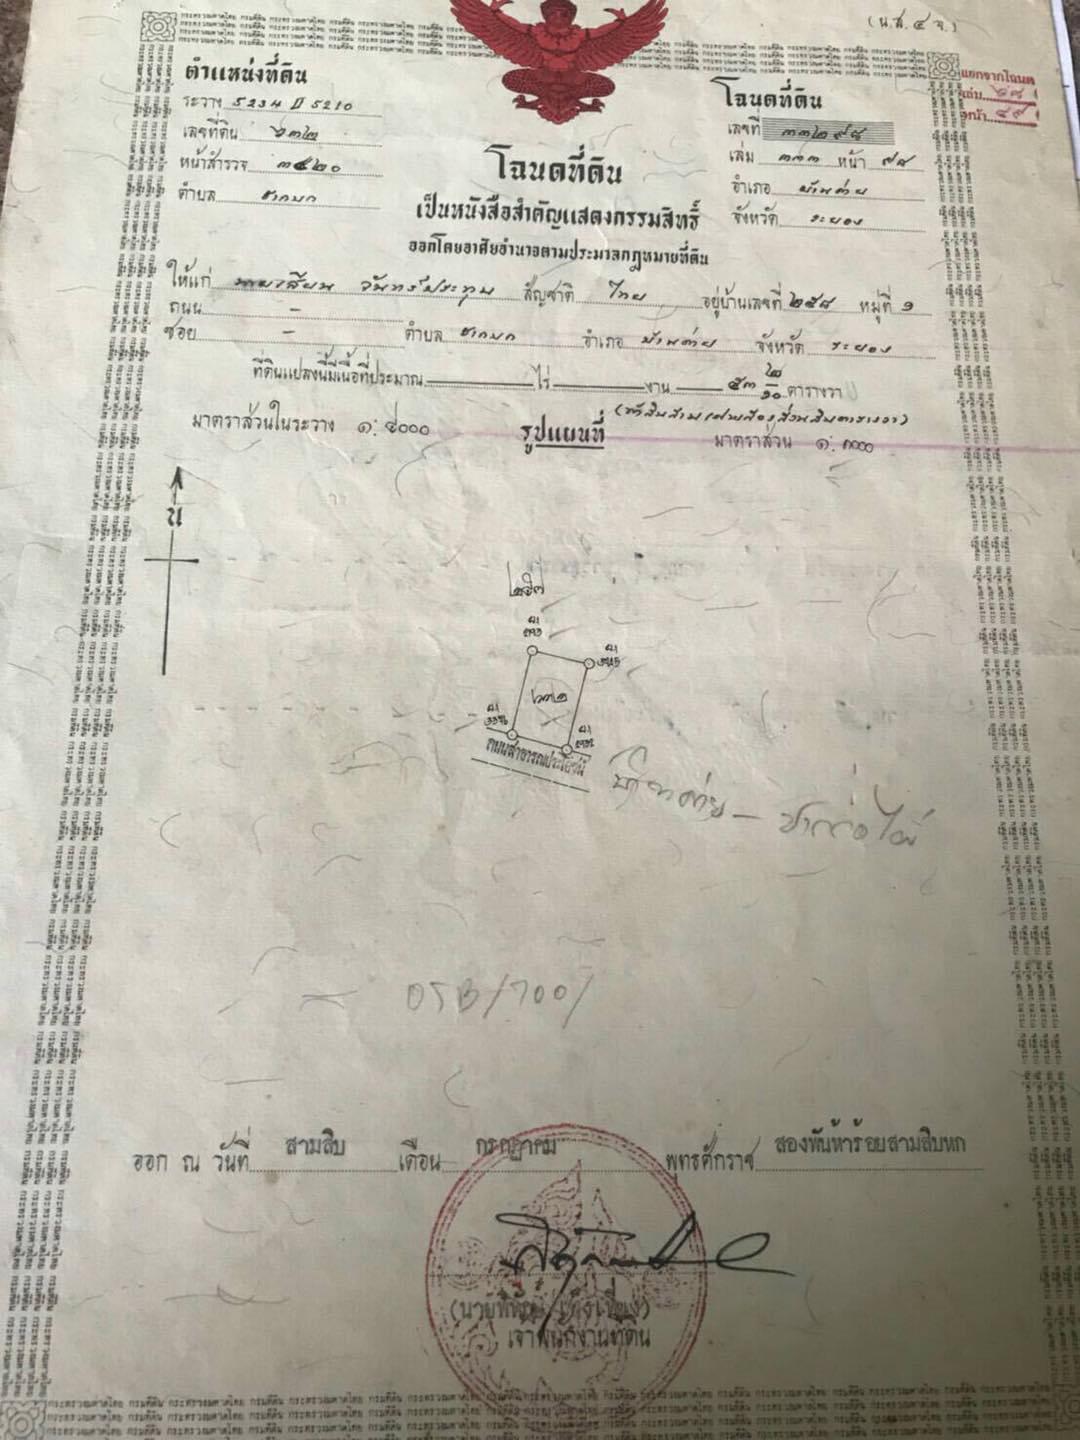 (น.ส. ๔ จ.)
ตำแหน่งที่ดิน
ระวาง 5234 II 5210
เลขที่ดิน ๖๓๒
หน้าสำรวจ ๓๕๒๐
ตำบล ชากบก
แยกจากโฉนด
เล่ม
หน้า ๔๙
โฉนดที่ดิน
เลขที่ ๓๓๒๙๘
เล่ม ๓๓๓ หน้า ๙๘
อำเภอ บ้านค่าย
จังหวัด ระยอง
โฉนดที่ดิน
เป็นหนังสือสำคัญแสดงกรรมสิทธิ์
ออกโดยอาศัยอำนาจตามประมวลกฎหมายที่ดิน
ให้แก่ จันทร์ประทุม สัญชาติ ไทย อยู่บ้านเลขที่ ๒๕๘ หมู่ที่ ๑
ถนน –
ซอย – ตำบล ชากบก อำเภอ บ้านค่าย จังหวัด ระยอง
ที่ดินแปลงนี้มีเนื้อที่ประมาณ ไร่ งาน ๕๓ ๒/๑๐ ตารางวา
(ห้าสิบสามเศษสองส่วนสิบตารางวา)
มาตราส่วนในระวาง ๑: ๔๐๐๐ รูปแผนที่ มาตราส่วน ๑: ๑๐๐๐
น
๖๓๒
ถนนสาธารณประโยชน์
บ้านค่าย –
ออก ณ วันที่ สามสิบ เดือน กรกฎาคม พุทธศักราช สองพันห้าร้อยสามสิบหก
เจ้าพนักงานที่ดิน